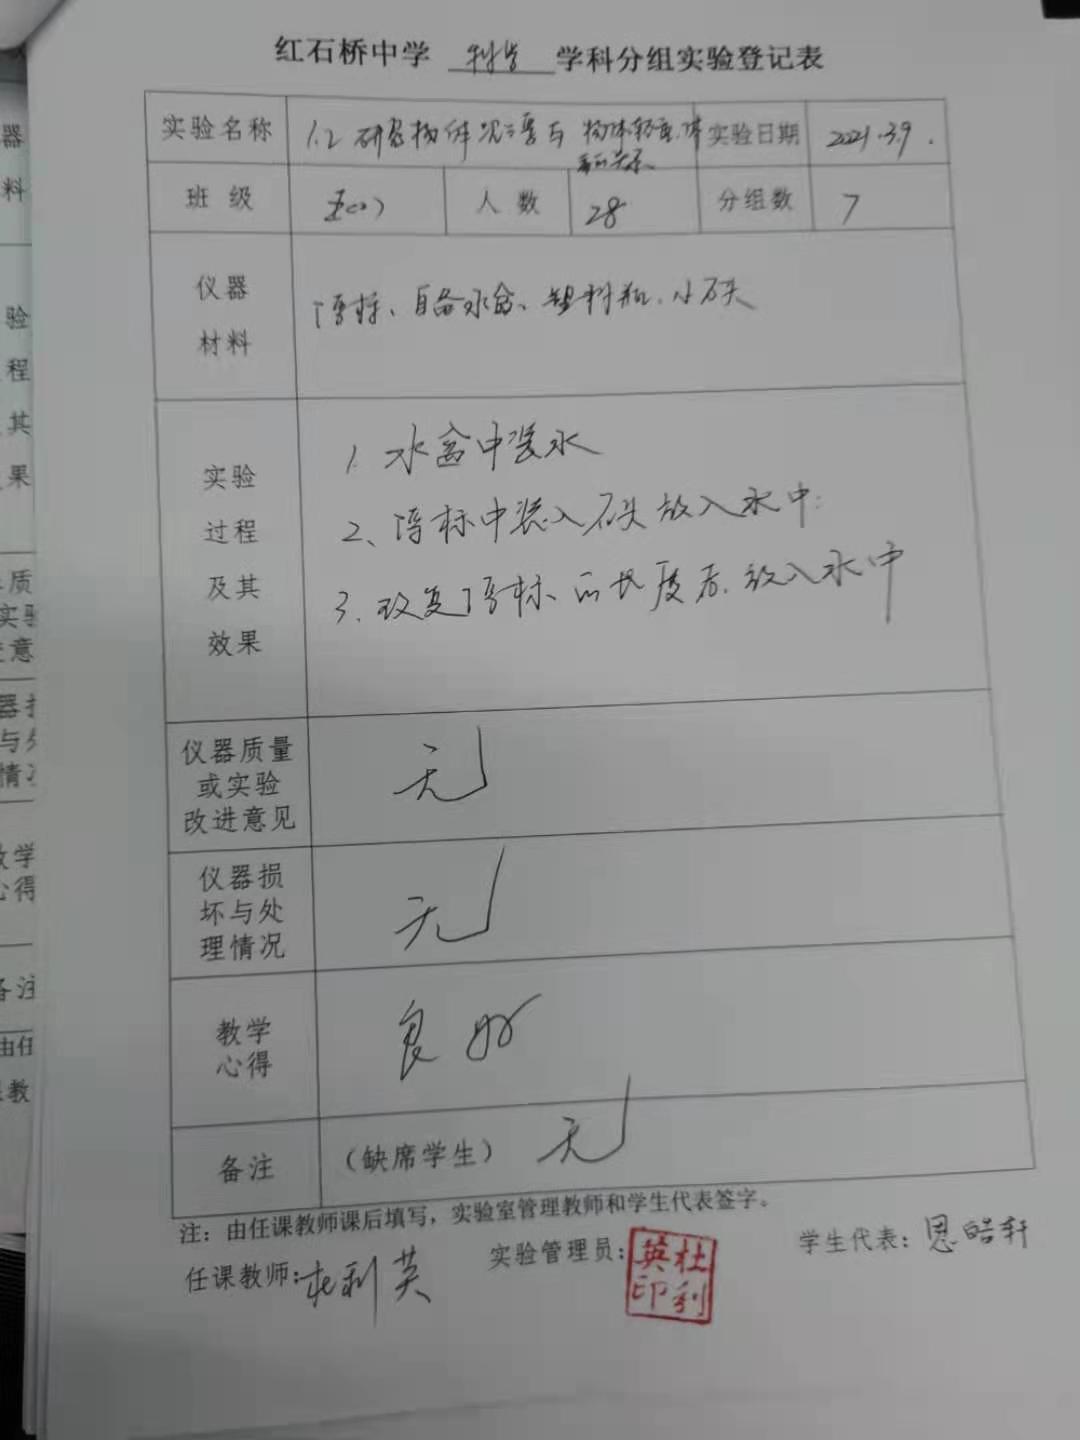 红石桥中学 科学 学科分组实验登记表
实验名称 1.2 研究物体沉浮与物体轻重、体积的关系 实验日期 2021.3.9.
班级 五(2) 人数 28 分组数 7
仪器
材料
浮标、自备水盆、塑料瓶、小石头
实验
过程
及其
效果
1. 水盆中装水
2、浮标中装入石头放入水中
3. 改变浮标的长度后.放入水中
仪器质量
或实验
改进意见
无
仪器损
坏与处
理情况
无
教学
心得
良好
备注 (缺席学生) 无
注：由任课教师课后填写，实验室管理教师和学生代表签字。
任课教师：杜利英 实验管理员： 学生代表：恩皓轩
英杜
印利
器
料
验
程
其
果
质
实验
意
器
与
情
教学
心得
备注
由任
教